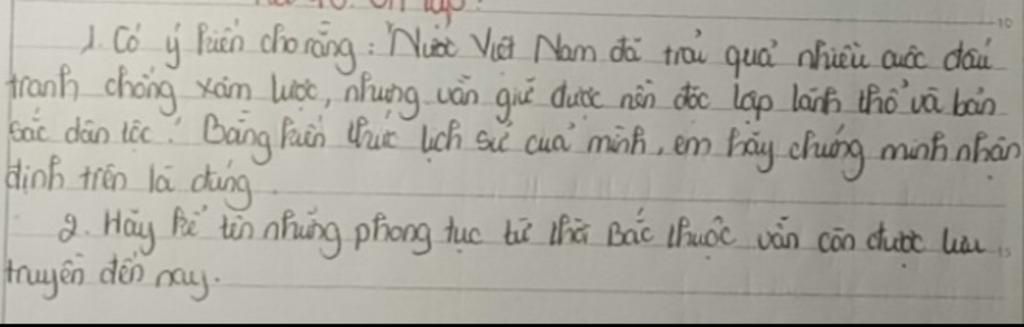 1. Có ý kiến cho rằng: "Nước Việt Nam đã trải quả nhiều cuộc đấu
tranh chống xâm lược, nhưng vẫn giữ được nền độc lập lãnh thổ và bản
sắc dân tộc." Bằng kiến thức lịch sử của mình, em hãy chứng minh nhận
định trên là đúng.
2. Hãy kể tên những phong tục từ thời Bắc thuộc vẫn còn được lưu
truyền đến nay.